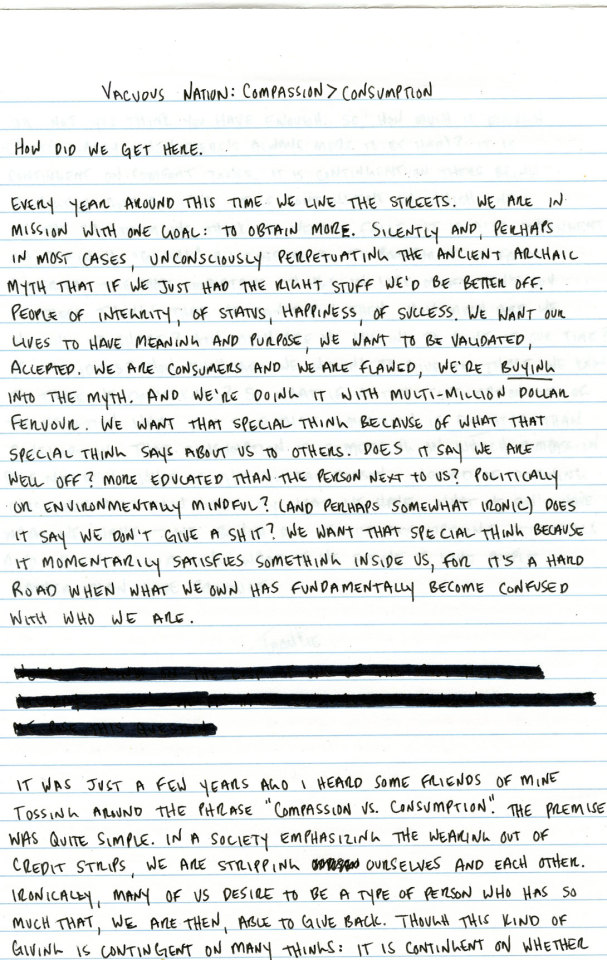 VACUOUS NATION: COMPASSION > CONSUMPTION
HOW DID WE GET HERE.
EVERY YEAR AROUND THIS TIME WE LINE THE STREETS. WE ARE IN
MISSION WITH ONE GOAL: TO OBTAIN MORE. SILENTLY AND, PERHAPS
IN MOST CASES, UNCONSCIOUSLY PERPETUATING THE ANCIENT ARCHAIC
MYTH THAT IF WE JUST HAD THE RIGHT STUFF WE'D BE BETTER OFF.
PEOPLE OF INTEGRITY, OF STATUS, HAPPINESS, OF SUCCESS. WE WANT OUR
LIVES TO HAVE MEANING AND PURPOSE, WE WANT TO BE VALIDATED,
ACCEPTED. WE ARE CONSUMERS AND WE ARE FLAWED, WE'RE BUYING
INTO THE MYTH. AND WE'RE DOING IT WITH MULTI-MILLION DOLLAR
FERVOUR. WE WANT THAT SPECIAL THING BECAUSE OF WHAT THAT
SPECIAL THING SAYS ABOUT US TO OTHERS. DOES IT SAY WE ARE
WELL OFF? MORE EDUCATED THAN THE PERSON NEXT TO US? POLITICALLY
OR ENVIRONMENTALLY MINDFUL? (AND PERHAPS SOMEWHAT IRONIC) DOES
IT SAY WE DON'T GIVE A SHIT? WE WANT THAT SPECIAL THING BECAUSE
IT MOMENTARILY SATISFIES SOMETHING INSIDE US, FOR IT'S A HARD
ROAD WHEN WHAT WE OWN HAS FUNDAMENTALLY BECOME CONFUSED
WITH WHO WE ARE.
IT WAS JUST A FEW YEARS AGO I HEARD SOME FRIENDS OF MINE
TOSSING AROUND THE PHRASE "COMPASSION VS. CONSUMPTION". THE PREMISE
WAS QUITE SIMPLE. IN A SOCIETY EMPHASIZING THE WEARING OUT OF
CREDIT STRIPS, WE ARE STRIPPING OURSELVES AND EACH OTHER.
IRONICALLY, MANY OF US DESIRE TO BE A TYPE OF PERSON WHO HAS SO
MUCH THAT, WE ARE THEN, ABLE TO GIVE BACK. THOUGH THIS KIND OF
GIVING IS CONTINGENT ON MANY THINGS: IT IS CONTINGENT ON WHETHER